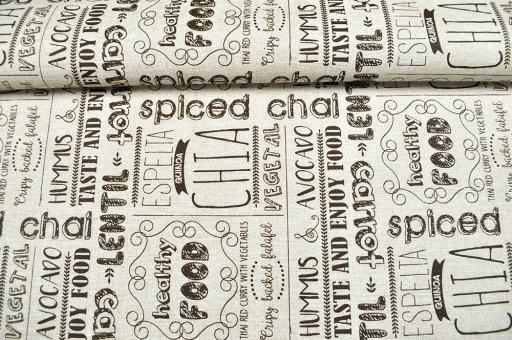 VEGETAL
AVOCADO
ENJOY FOOD
carrot
healthy
FOOD
THAI RED CURRY WITH VEGETABLES
HUMMUS
TASTE AND
LENTIL
ESPELTA
QUINOA
CHIA
spiced chai
THAI RED CURRY WITH VEGETABLES
Cripy backed falafel
HUMMUS &
TASTE AND ENJOY
carrot
LENTIL
spiced chai
ESPELTA
QUINOA
CHIA
VEGETAL
AVOCADO
HUMMUS &
TASTE AND ENJOY FOOD
carrot
LENTIL
healthy
FOOD
THAI RED CURRY WITH VEGETABLES
chai
VEGETAL
AVOCADO
JOY FOOD
healthy
FOOD
THAI RED CURRY WITH VEGETABLES
Cripy backed falafel
spiced
ESPELTA
QUINOA
CHIA